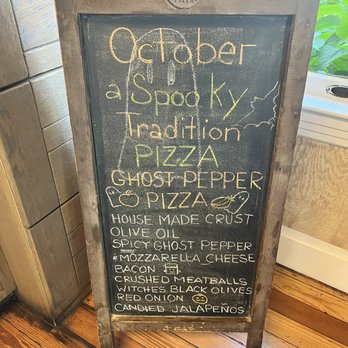 October
a Spooky
Tradition
PIZZA
GHOST PEPPER
PIZZA
HOUSE MADE CRUST
OLIVE OIL
SPICY GHOST PEPPER
MOZZARELLA CHEESE
BACON
CRUSHED MEATBALLS
WITCHES BLACK OLIVES
RED ONION
CANDIED JALAPEÑOS